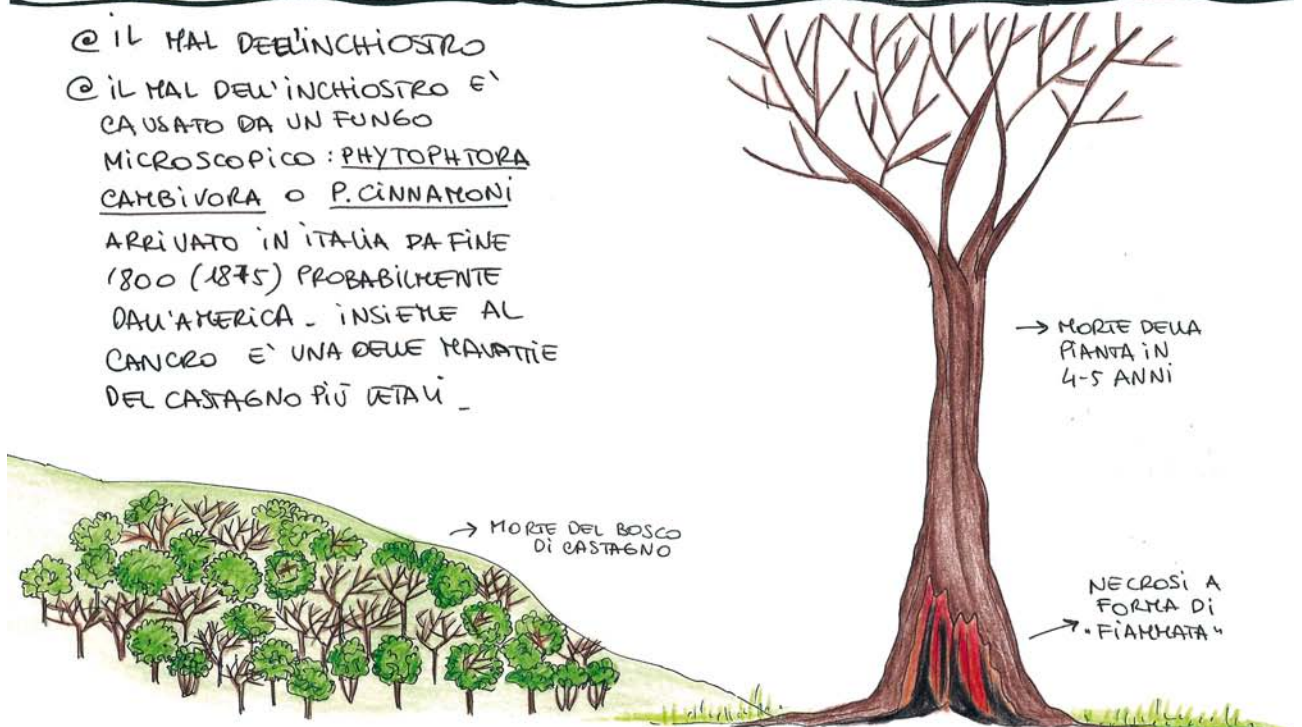 @ IL MAL DELL'INCHIOSTRO
@ IL MAL DELL'INCHIOSTRO E`
CAUSATO DA UN FUNGO
MICROSCOPICO: PHYTOPHTORA
CAMBIVORA O P. CINNAMONI
ARRIVATO IN ITALIA DA FINE
1800 (1875) PROBABILMENTE
DALL'AMERICA_ INSIEME AL
CANCRO E` UNA DELLE MALATTIE
DEL CASTAGNO PIÙ LETALI_
→ MORTE DELLA
PIANTA IN
4-5 ANNI
→ MORTE DEL BOSCO
DI CASTAGNO
NECROSI A
FORMA DI
→ "FIAMMATA"